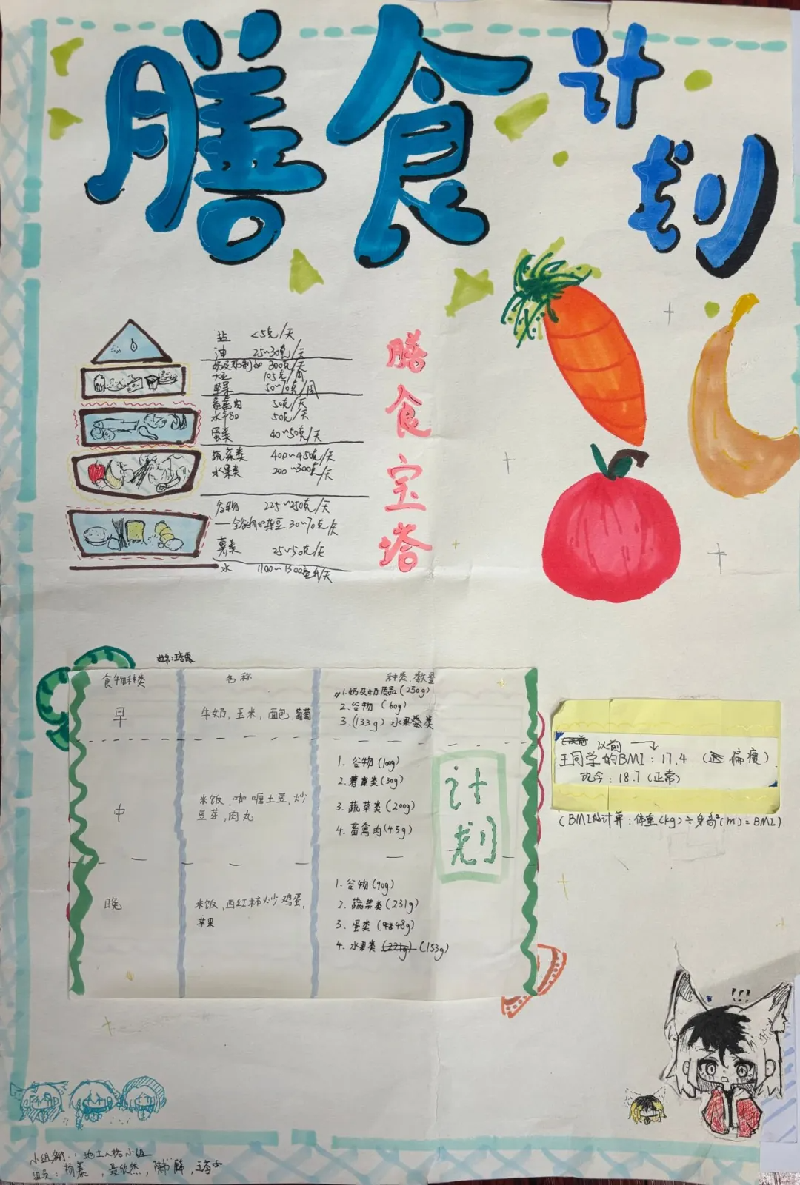 膳食计划
盐 <5克/天
油 25~30克/天
奶及奶制品 300克/天
大豆 105克/周
坚果 50~70克/周
畜禽肉 50克/天
水产品 50克/天
蛋类 40~50克/天
蔬菜类 400~450克/天
水果类 200~300克/天
谷物 225~250克/天
—全谷物和杂豆 30~70克/天
薯类 25~50克/天
水 1100~1300毫升/天
膳食宝塔
食物种类 名称 种类、数量
早 牛奶,玉米,面包 葡萄
1.奶及奶制品(250g)
2.谷物(60g)
3.(133g)水果类
中 米饭,咖喱土豆,炒豆芽,肉丸
1.谷物(100g)
2.薯类(30g)
3.蔬菜类(200g)
4.畜禽肉(45g)
晚 米饭,西红柿炒鸡蛋,苹果
1.谷物(90g)
2.蔬菜类(231g)
3.蛋类(48g)
4.水果类(221g)(153g)
计划
以前
王同学的BMI:17.4(偏瘦)
现今:18.7(正常)
(BMI的计算:体重(kg)÷身高²(m)=BMI)
!!!